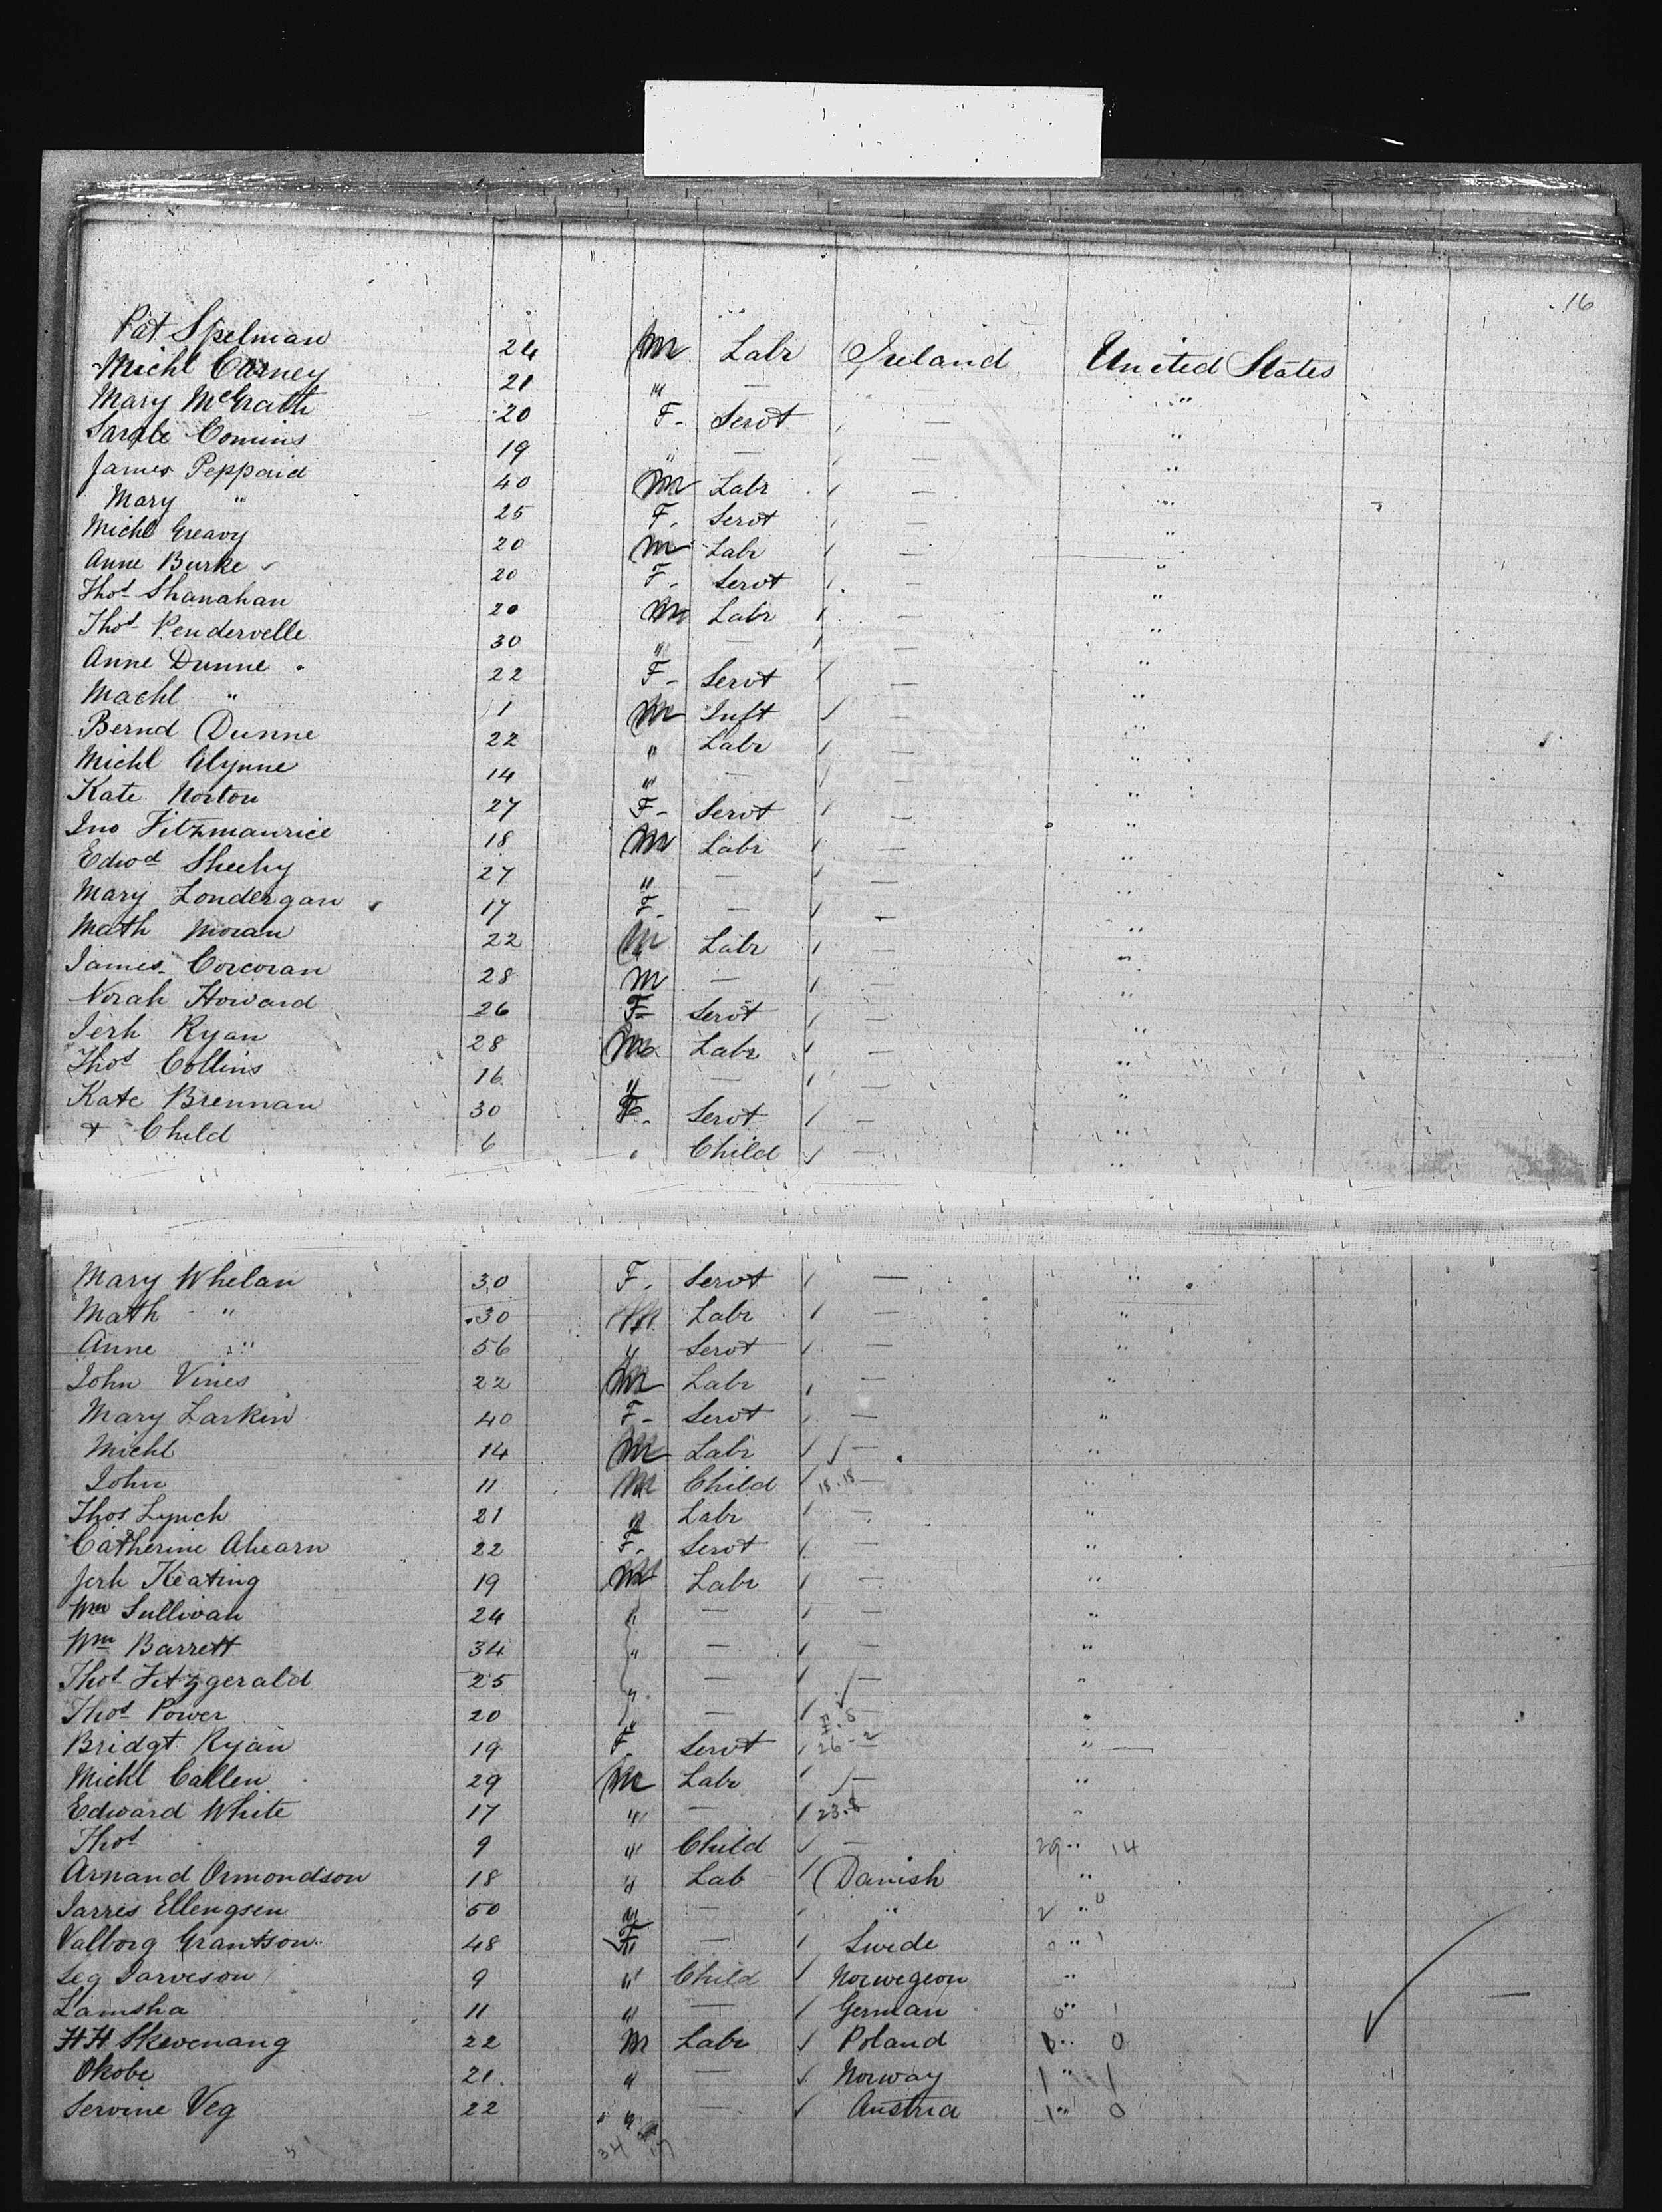 16
Pat Spelman 24 M Labr Ireland United States
Michl Carney 21 " — — "
Mary McGrath 20 F Servt — "
Sarah Comins 19 " — — "
James Peppaid 40 M Labr — "
Mary " 25 F Servt — "
Michl Greavy 20 M Labr — "
Anne Burke 20 F Servt — "
Thos Shanahan 20 M Labr — "
Thos Pendervelle 30 " — — "
Anne Dunne 22 F Servt — "
Machl " 1 M Inft — "
Bernd Dunne 22 " Labr — "
Michl Glynne 14 " — — "
Kate Norton 27 F Servt — "
Jno Fitzmaurice 18 M Labr — "
Edwd Sheehy 27 " — — "
Mary Londergan 17 F — — "
Math Moran 22 M Labr — "
James Corcoran 28 M — — "
Norah Howard 26 F Servt — "
Jerh Ryan 28 M Labr — "
Thos Collins 16 " — — "
Kate Brennan 30 F Servt — "
+ Child 6 " Child — "
Mary Whelan 30 F Servt — "
Math " 30 M Labr — "
Anne " 56 Servt — "
John Vines 22 M Labr — "
Mary Larkin 40 F Servt — "
Michl 14 M Labr — "
John 11 M Child 18.18 — "
Thos Lynch 21 " Labr — "
Catherine Ahearn 22 F Servt — "
Jerh Keating 19 M Labr — "
Wm Sullivan 24 " — — "
Wm Barrett 34 " — — "
Thos Fitzgerald 25 " — — "
Thos Power 20 " — — "
Bridgt Ryan 19 F Servt 26-2 "
Michl Callen 29 M Labr — "
Edward White 17 " — 23.8 "
Thos 9 " Child — 29 " 14
Arnand Ormondson 18 " Lab Danish "
Jarres Ellengsen 50 " — " 2 " 0
Valborg Grantson 48 F — Swede 0 " 1
Seg Jarveson 9 " Child Norwegeon "
Lamsha 11 " — German 0 " 1
HH Skevenang 22 M Labr Poland 0
Okobe 21 " — Norway 1 " 1
Servine Veg 22 " — Austria 1 " 0
34 17